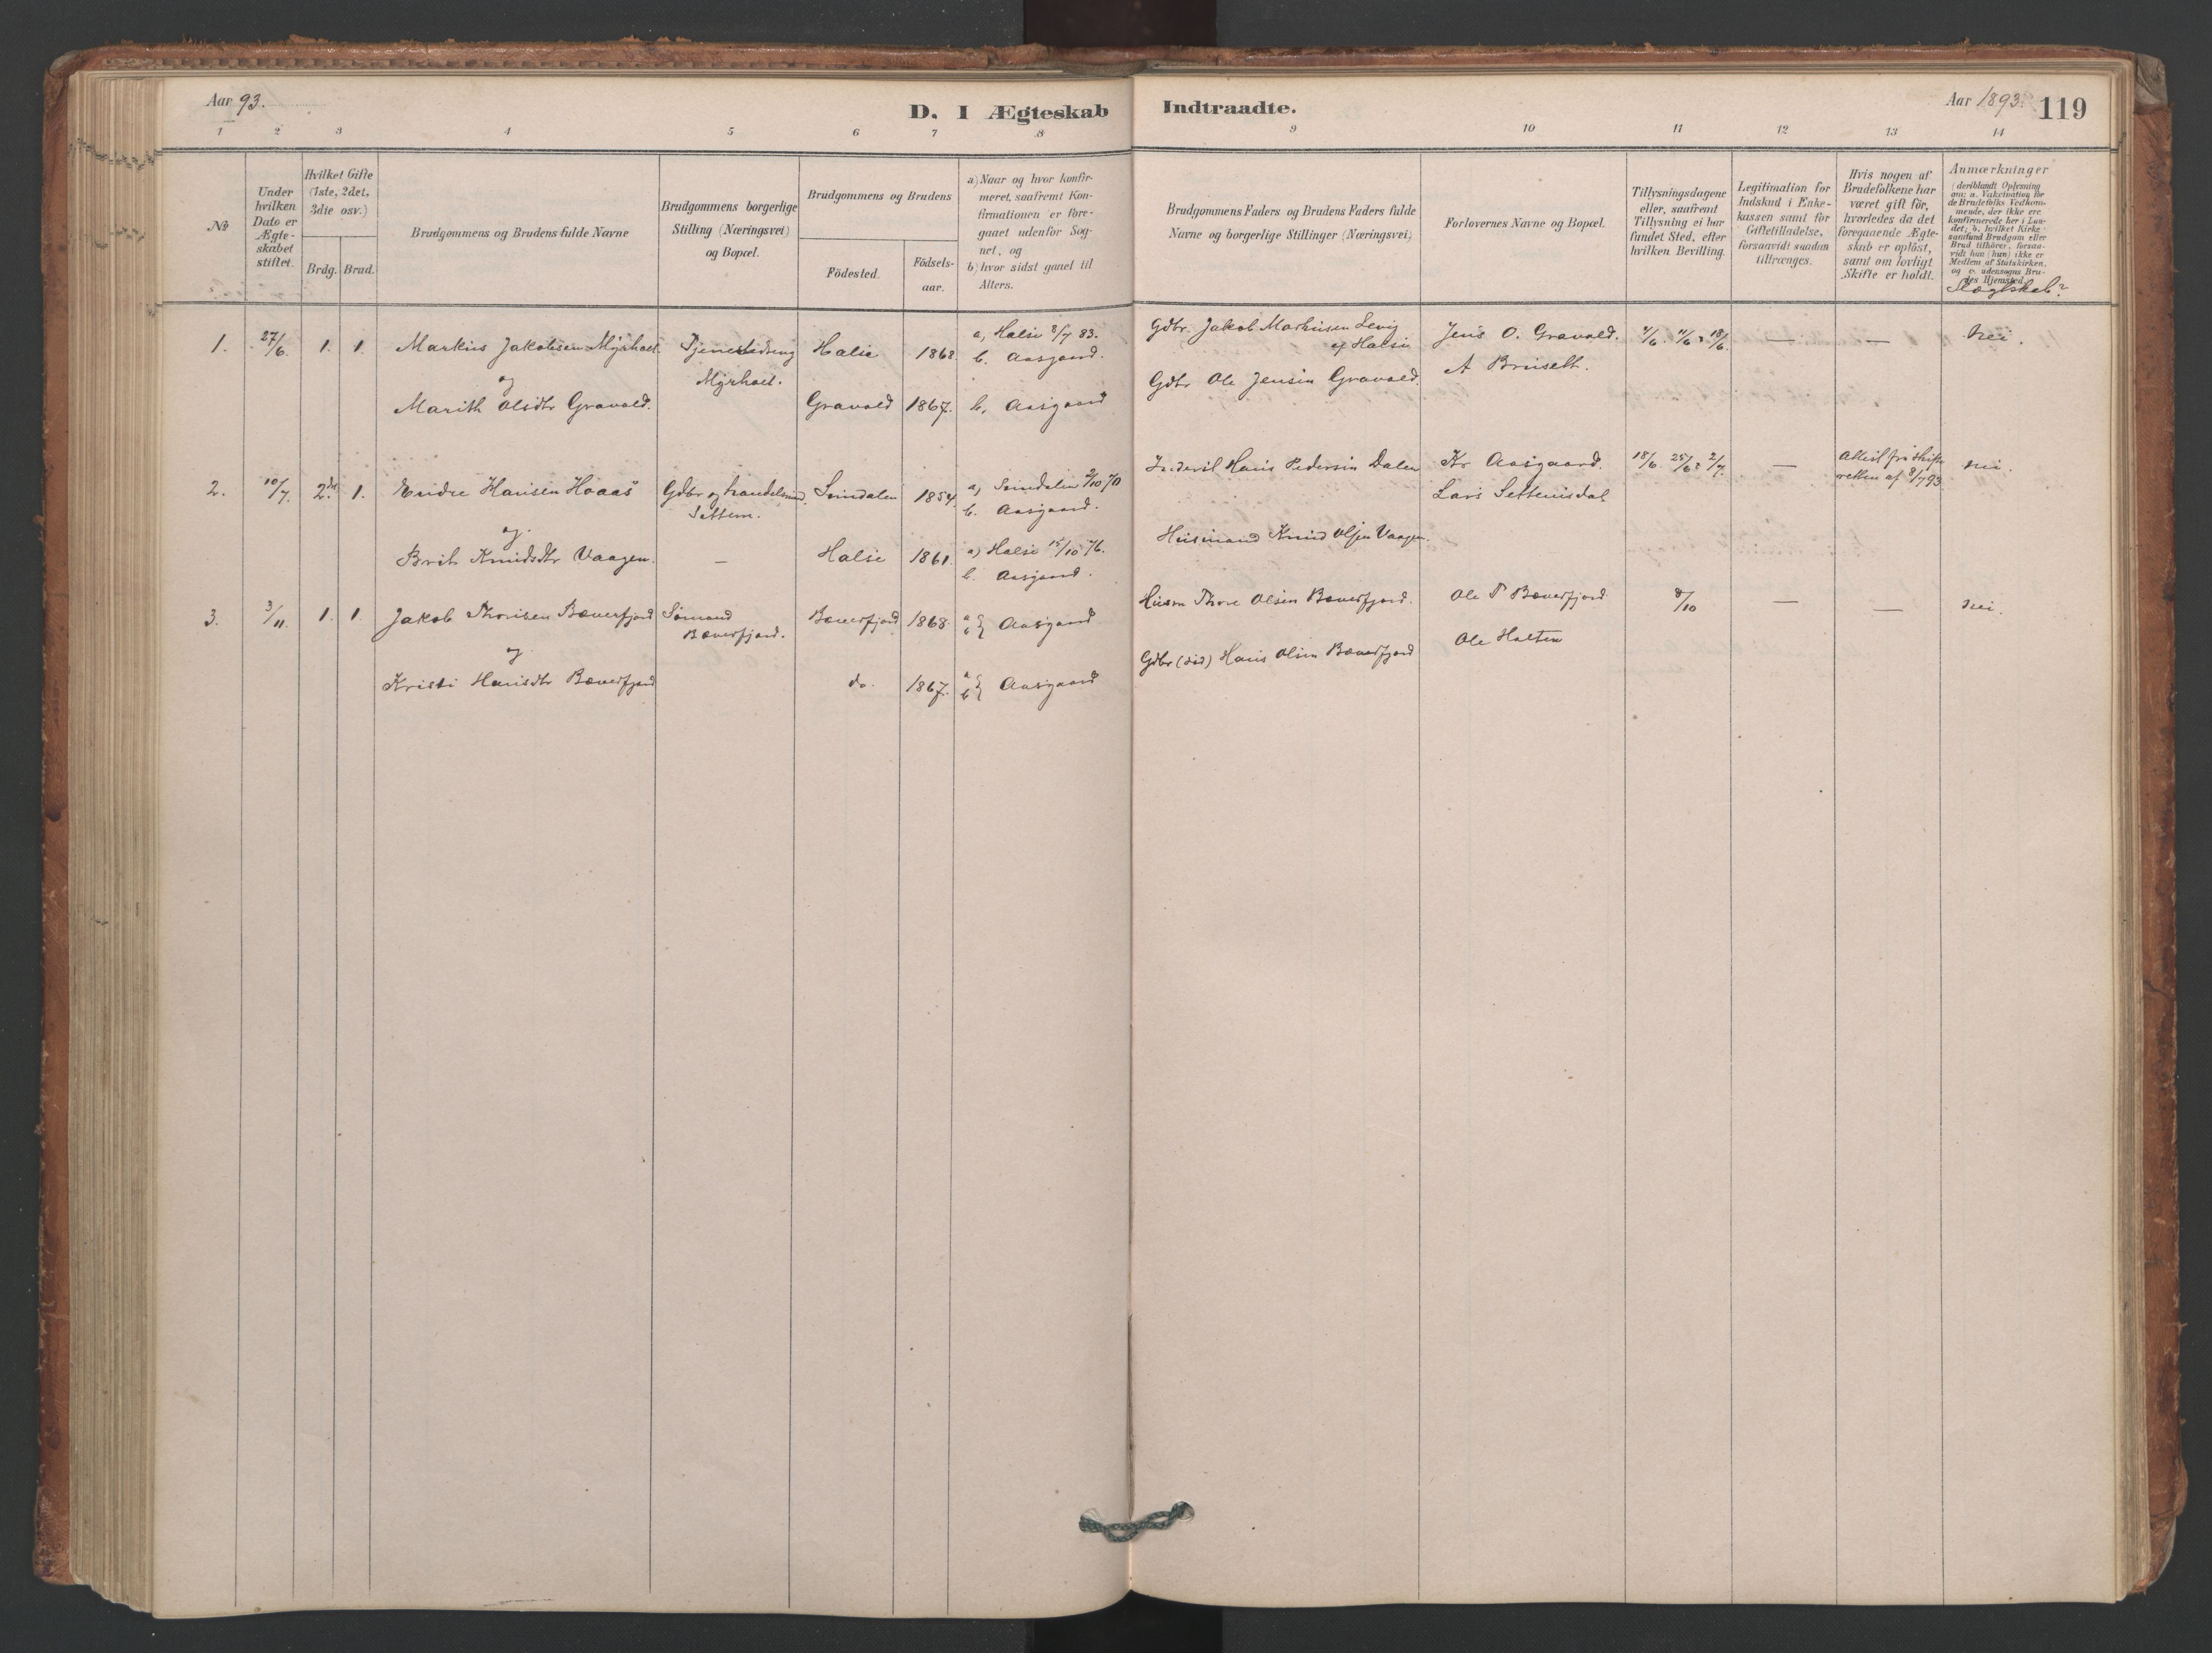 Aar 93.
D. I Ægteskab Indtraadte.
Aar 1893. 119
1 2 3 4 5 6 7 8 9 10 11 12 13 14
No
Under hvilken Dato er Ægte-skabet stiftet.
Hvilket Gifte (1ste, 2det, 3die osv.)
Brdg. Brud.
Brudgommens og Brudens fulde Navne
Brudgommens borgerlige Stilling (Næringsvei) og Bopæl.
Brudgommens og Brudens
Födested.
Födsels-aar.
a) Naar og hvor konfir-
meret, saafremt Kon-
firmationen er fore-
gaaet udenfor Sog-
net, og
b) hvor sidst gaaet til
Alters.
Brudgommens Faders og Brudens Faders fulde
Navne og borgerlige Stillinger (Næringsvei)
Forlovernes Navne og Bopæl.
Tillysningsdagene
eller, saafremt
Tillysning ei har
fundet Sted, efter
hvilken Bevilling.
Legitimation for
Indskud i Enke-
kassen samt for
Giftetilladelse,
forsaavidt saadan
tiltrænges.
Hvis nogen af
Brudefolkene har
været gift för,
hvorledes da det
foregaaende Ægte-
skab er oplöst,
samt om lovligt
Skifte er holdt.
Anmærkninger
(deriblandt Oplysning
om: a. Vakcination for
de Brudefolks Vedkom-
mende, der ikke ere
konfirmerede her i Lan-
det; b. hvilket Kirke-
samfund Brudgom eller
Brud tilhörer, forsaa-
vidt han (hun) ikke er
Medlem af Statskirken,
og c. udensogns Bru-
des Hjemsted.)
Slægtskab?
1. 27/6. 1. 1. Markus Jakobsen Myrhoel Tjenestedreng Halse 1868 a, Halse 8/7 83. Gdbr. Jakob Markusen Jens O. Gravold. 4/6. 11/6 18/6. — — Nei.
Myrhoel. b. Aasgaard. af Halse A Bruselt.
og Gdbr Ole Jensen Gravold.
Marith Olsdtr Gravold. Gravold 1867. b, Aasgaard
2. 10/7. 2det 1. Endre Hansen Hoaas Gdbr og handelsmd. Surndalen 1854. a, Surndalen 2/10 70 Hans Pedersen Dalen Kr Aasgaard. 18/6. 25/6. 2/7. — Attest fra Skifte nei.
Settem. b. Aasgaard. Lars Settemsdal retten af 8/7 93.
og Husmand Knud Olsen Vaagen.
Brit Knudsdtr Vaagen. — Halse 1861. a) Halse 15/10 76.
b. Aasgaard.
3. 3/11. 1. 1. Jakob Thoresen Bæverfjord Sømand Bæverfjord 1868 a b } Aasgaard Husm Thore Olsen Bæverfjord. Ole T Bæverfjord 8/10 — — nei.
Bæverfjord. Ole Holten
og Gdbr (død) Hans Olsen Bæverfjord
Kristi Hansdtr Bæverfjord do. 1867. a b } Aasgaard